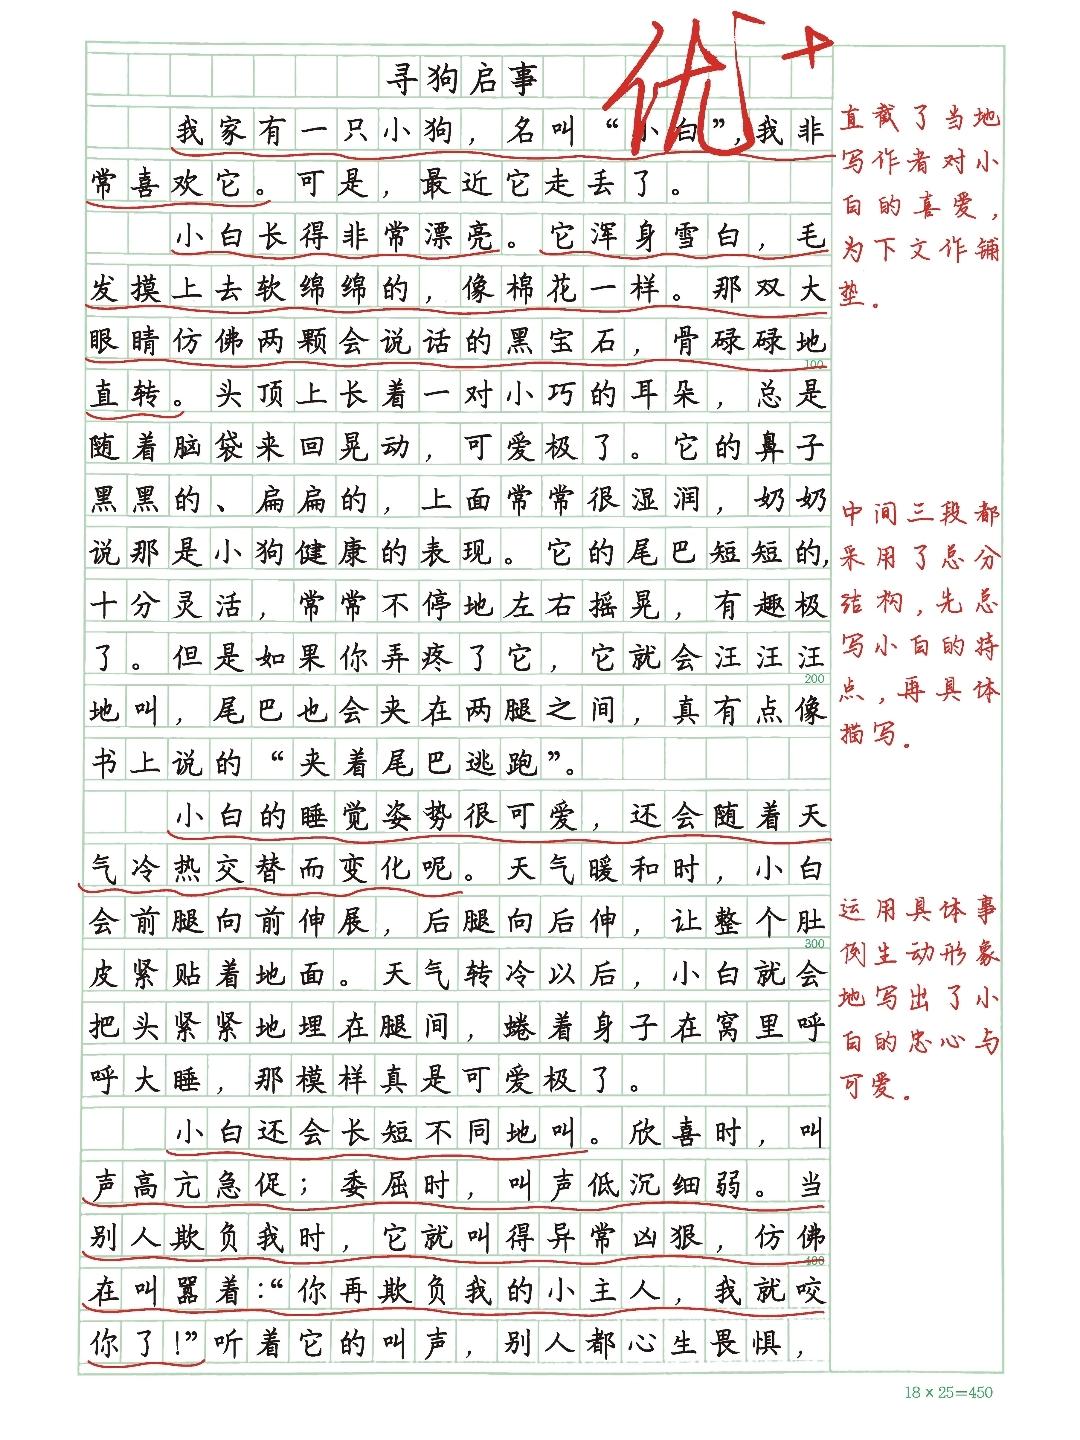 寻狗启事
优+
我家有一只小狗，名叫“小白”，我非
常喜欢它。可是，最近它走丢了。
小白长得非常漂亮。它浑身雪白，毛
发摸上去软绵绵的，像棉花一样。那双大
眼睛仿佛两颗会说话的黑宝石，骨碌碌地
100
直转。头顶上长着一对小巧的耳朵，总是
随着脑袋来回晃动，可爱极了。它的鼻子
黑黑的、扁扁的，上面常常很湿润，奶奶
说那是小狗健康的表现。它的尾巴短短的，
十分灵活，常常不停地左右摇晃，有趣极
了。但是如果你弄疼了它，它就会汪汪汪
200
地叫，尾巴也会夹在两腿之间，真有点像
书上说的“夹着尾巴逃跑”。
小白的睡觉姿势很可爱，还会随着天
气冷热交替而变化呢。天气暖和时，小白
会前腿向前伸展，后腿向后伸，让整个肚
300
皮紧贴着地面。天气转冷以后，小白就会
把头紧紧地埋在腿间，蜷着身子在窝里呼
呼大睡，那模样真是可爱极了。
小白还会长短不同地叫。欣喜时，叫
声高亢急促；委屈时，叫声低沉细弱。当
别人欺负我时，它就叫得异常凶狠，仿佛
400
在叫嚣着：“你再欺负我的小主人，我就咬
你了！”听着它的叫声，别人都心生畏惧，
直截了当地
写作者对小
白的喜爱，
为下文作铺
垫.
中间三段都
采用了总分
结构，先总
写小白的特
点，再具体
描写.
运用具体事
例生动形象
地写出了小
白的忠心与
可爱.
18×25=450